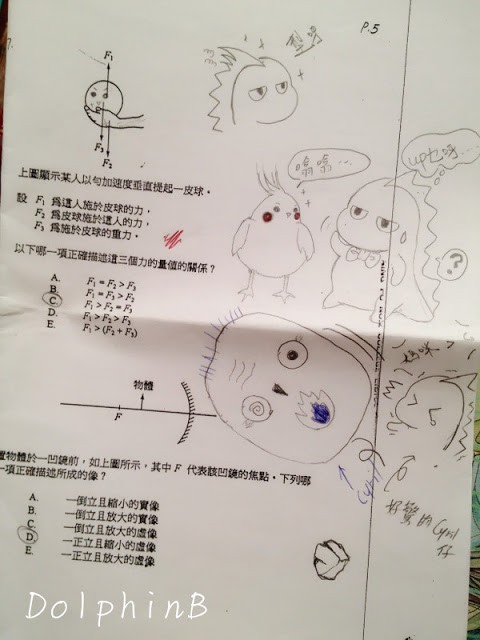 P.5
7.
F₁
F₃
F₂
上圖顯示某人以勻加速度垂直提起一皮球。
設 F₁ 為這人施於皮球的力，
F₂ 為皮球施於這人的力，
F₃ 為施於皮球的重力。
以下哪一項正確描述這三個力的量值的關係？
A. F₁ = F₂ > F₃
B. F₁ = F₃ > F₂
C. F₁ > F₂ = F₃
D. F₁ > F₂ > F₃
E. F₁ > (F₂ + F₃)
up也呀...
?
物體
F
置物體於一凹鏡前，如上圖所示，其中 F 代表該凹鏡的焦點。下列哪
一項正確描述所成的像？
A. 一倒立且縮小的實像
B. 一倒立且放大的實像
C. 一倒立且放大的虛像
D. 一正立且縮小的虛像
E. 一正立且放大的虛像
好驚的Cyril
仔
DolphinB